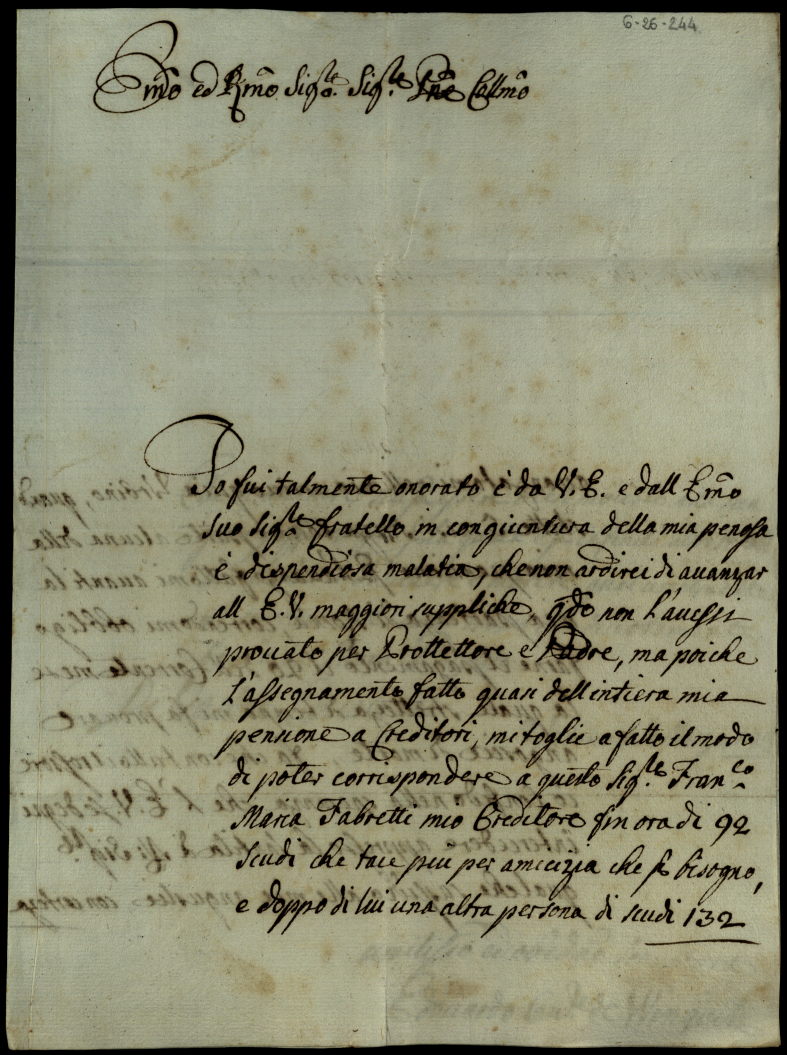 6-26-244
Emo ed Rmo Sigre Sigre Pne Collmo
Io fui talmente onorato è da V. E. e dall Emo
suo Sigre fratello in congiuntura della mia penosa
è dispendiosa malatia, che non ardirei di avanzar
all E. V. maggiori suppliche, qdo non l'avessi
provato per Prottettore e Padre, ma poiche
l'assegnamento fatto quasi dell intiera mia
pensione a Creditori, mi toglie a fatto il modo
di poter corrispondere a questo Sigre Franco
Maria Fabretti mio Creditore fin ora di 92
scudi che tace più per amicizia che p bisogno,
e doppo di lui una altra persona di scudi 132